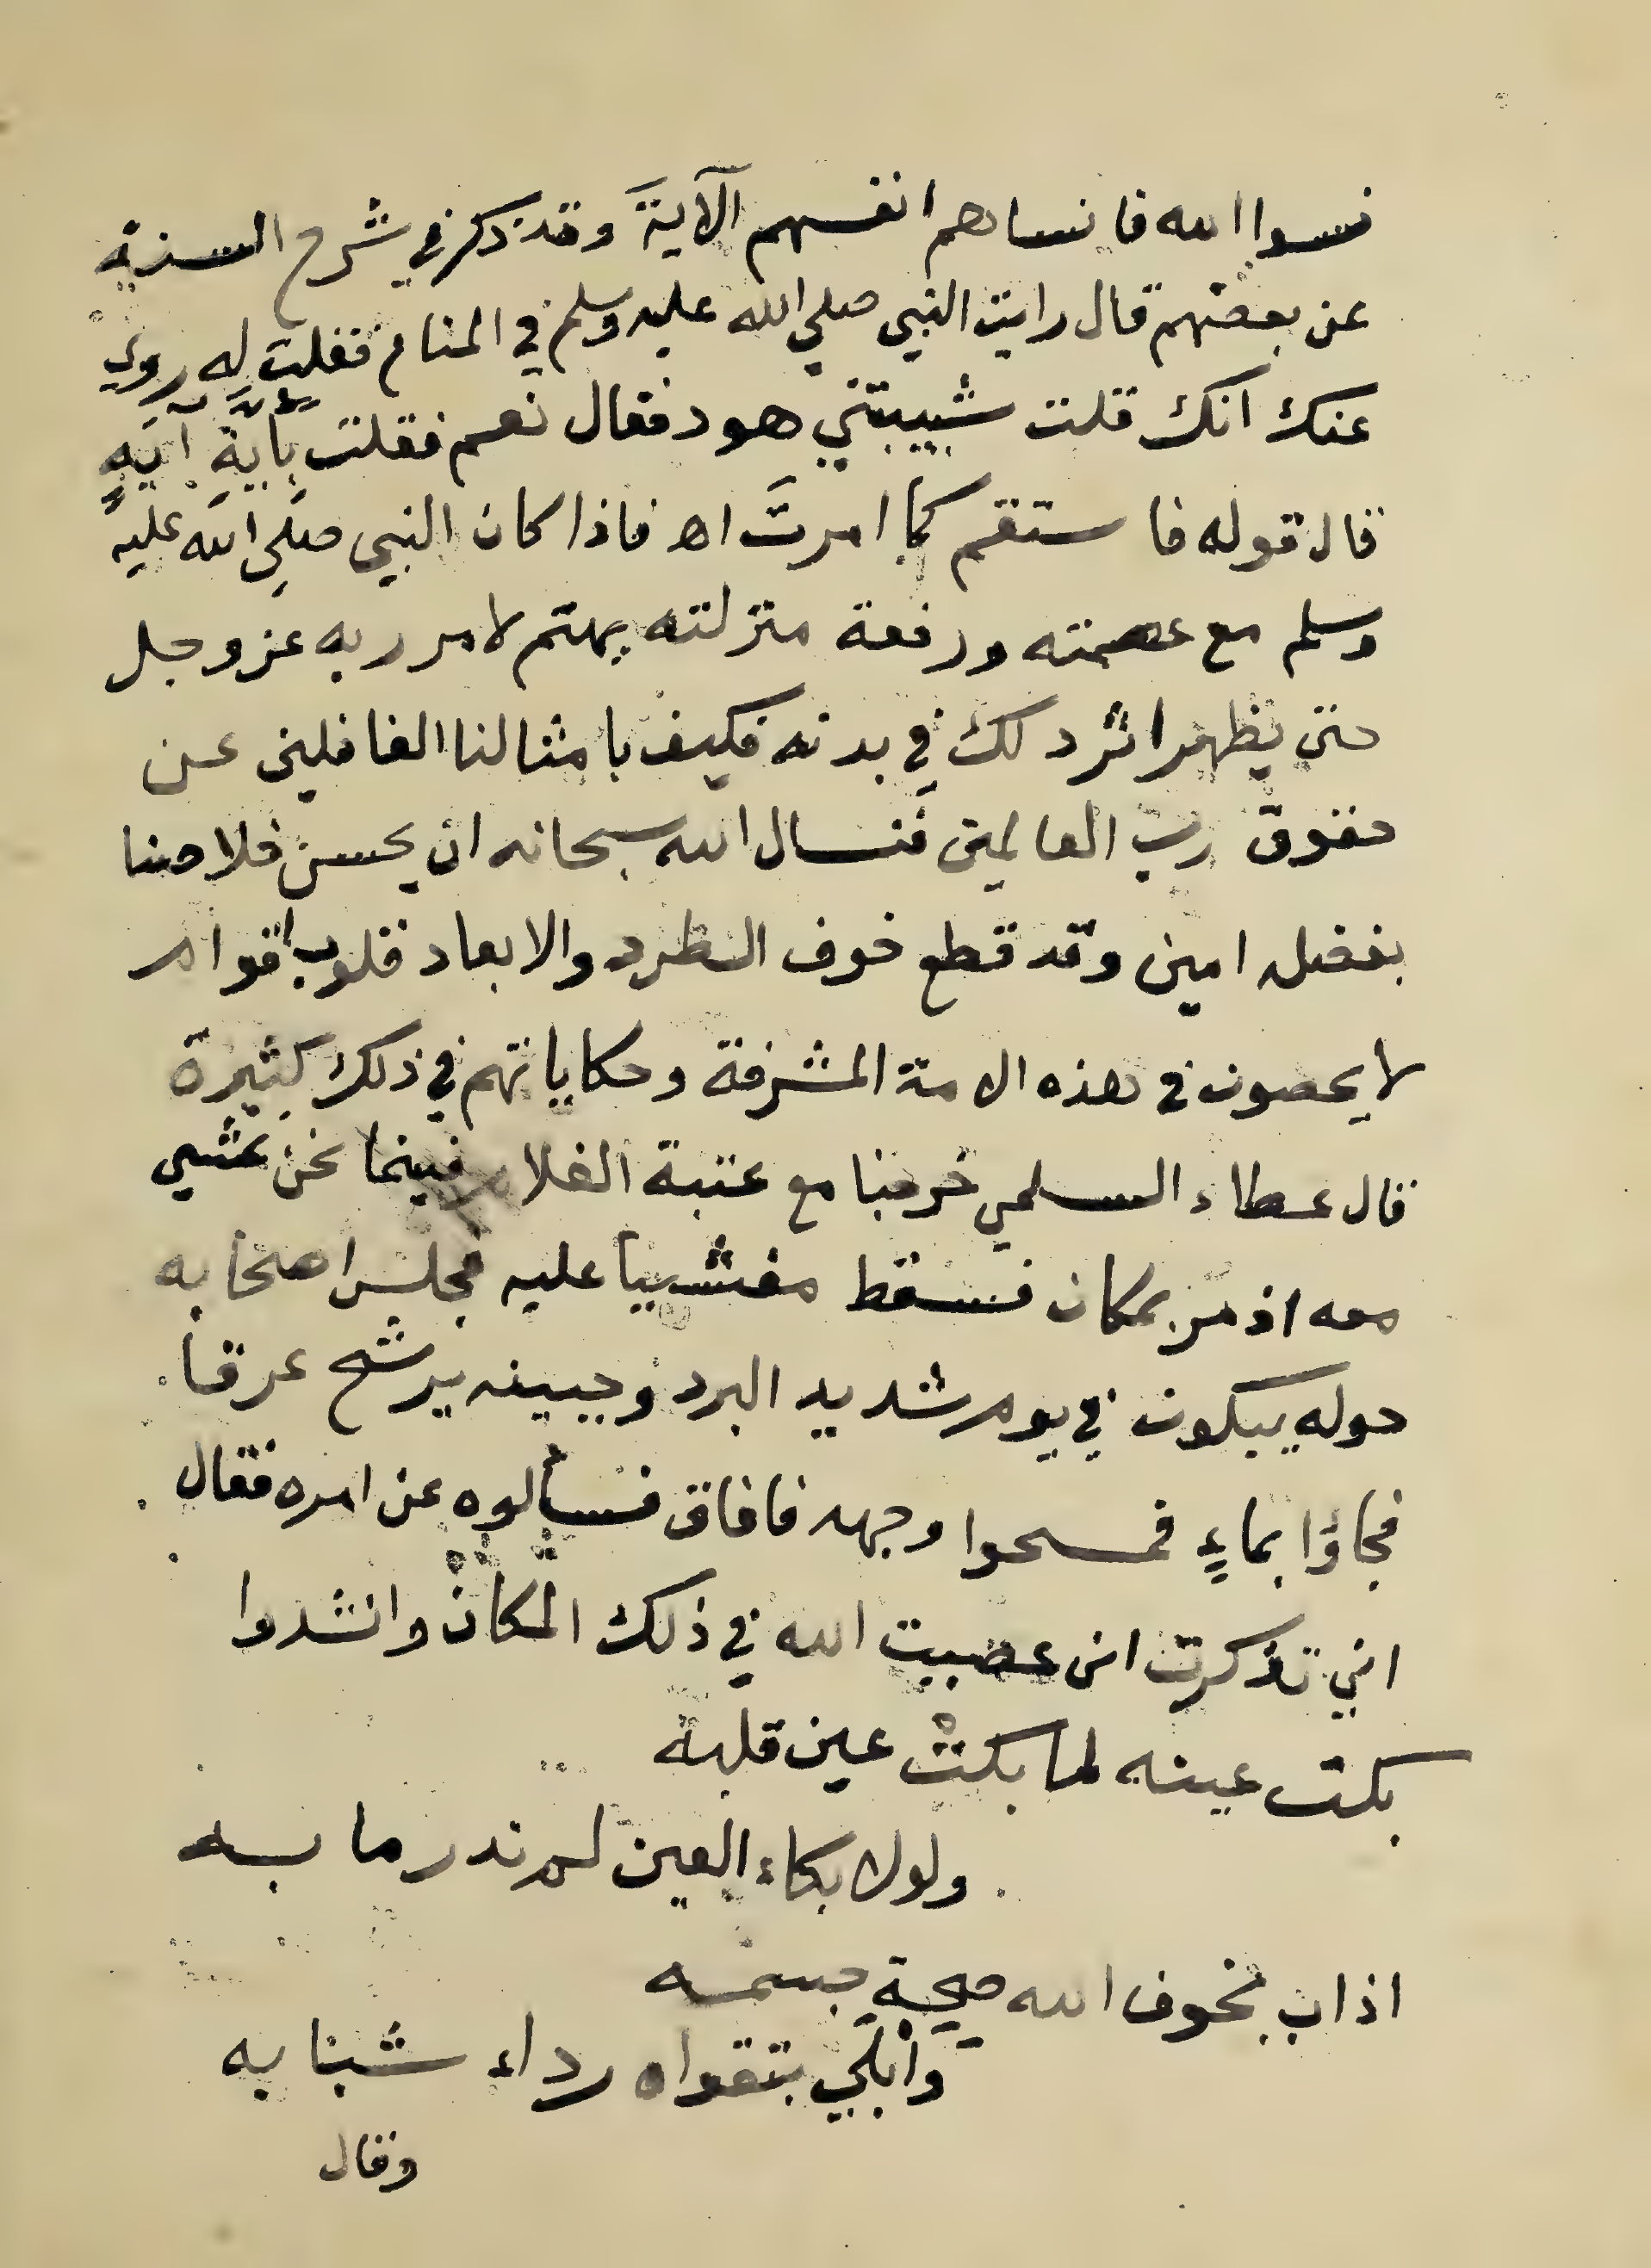 نسوا الله فانساهم انفسهم الآية وقد ذكر في شرح السنة
عن بعضهم قال رايت النبي صلي الله عليه وسلم في المنام فقلت له روي
عنك انك قلت شيبتني هود فقال نعم فقلت بأية آية
قال قوله فاستقم كما امرت اه فاذا كان النبي صلي الله عليه
وسلم مع عصمته ورفعة منزلته يهتم لامر ربه عز وجل
حتى يظهر اثر ذلك في بدنه فكيف بامثالنا الغافلين عن
حقوق رب العالمين فنسال الله سبحانه ان يحسن خلاصنا
بفضله امين وقد قطع خوف الطرد والابعاد قلوب اقوام
لا يحصون في هذه الامة المشرفة وحكاياتهم في ذلك كثيرة
قال عطاء السلمي خرجنا مع عتبة الغلام فبينما نحن نمشي
معه اذ مر بمكان فسقط مغشيا عليه فجلس اصحابه
حوله يبكون في يوم شديد البرد وجبينه يرشح عرقا
فجاؤا بماءٍ فمسحوا وجهه فافاق فسألوه عن امره فقال
اني تذكرت اني عصيت الله في ذلك المكان وانشدوا
بكت عينه لما بكتْ عين قلبه
ولولا بكاء العين لم ندر ما به
اذاب بخوف الله صحة جسمه
وأبلي بتقواه رداء شبابه
وقال